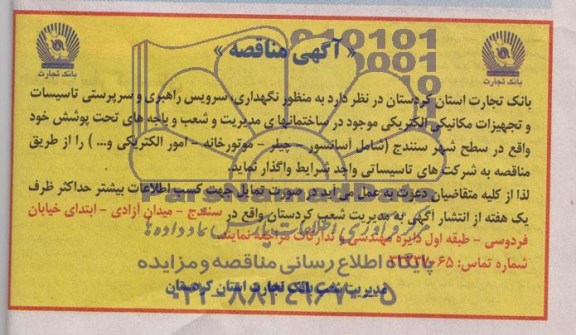 « آگهی مناقصه »
بانک تجارت
بانک تجارت
بانک تجارت استان کردستان در نظر دارد به منظور نگهداری، سرویس راهبری و سرپرستی تاسیسات
و تجهیزات مکانیکی الکتریکی موجود در ساختمانها ی مدیریت و شعب و باجه های تحت پوشش خود
واقع در سطح شهر سنندج (شامل آسانسور - چیلر - موتورخانه - امور الکتریکی و... ) را از طریق
مناقصه به شرکت های تاسیساتی واجد شرایط واگذار نماید.
لذا از کلیه متقاضیان دعوت به عمل می آید در صورت تمایل جهت کسب اطلاعات بیشتر حداکثر ظرف
یک هفته از انتشار آگهی به مدیریت شعب کردستان واقع در سنندج - میدان آزادی - ابتدای خیابان
فردوسی - طبقه اول دایره مهندسی و تدارکات مراجعه نمایند.
شماره تماس:
مدیریت شعب بانک تجارت استان کردستان
ParsNamadData
مرکز فرآوری اطلاعات پارس نماد داده ها
پایگاه اطلاع رسانی مناقصه و مزایده